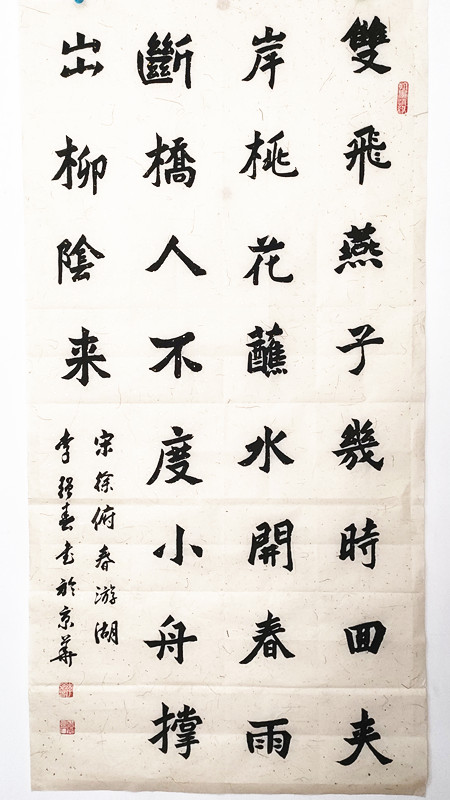 雙飛燕子幾時回夾
岸桃花蘸水開春雨
斷橋人不度小舟撐
出柳陰来
宋徐俯春游湖
李强春书於京華